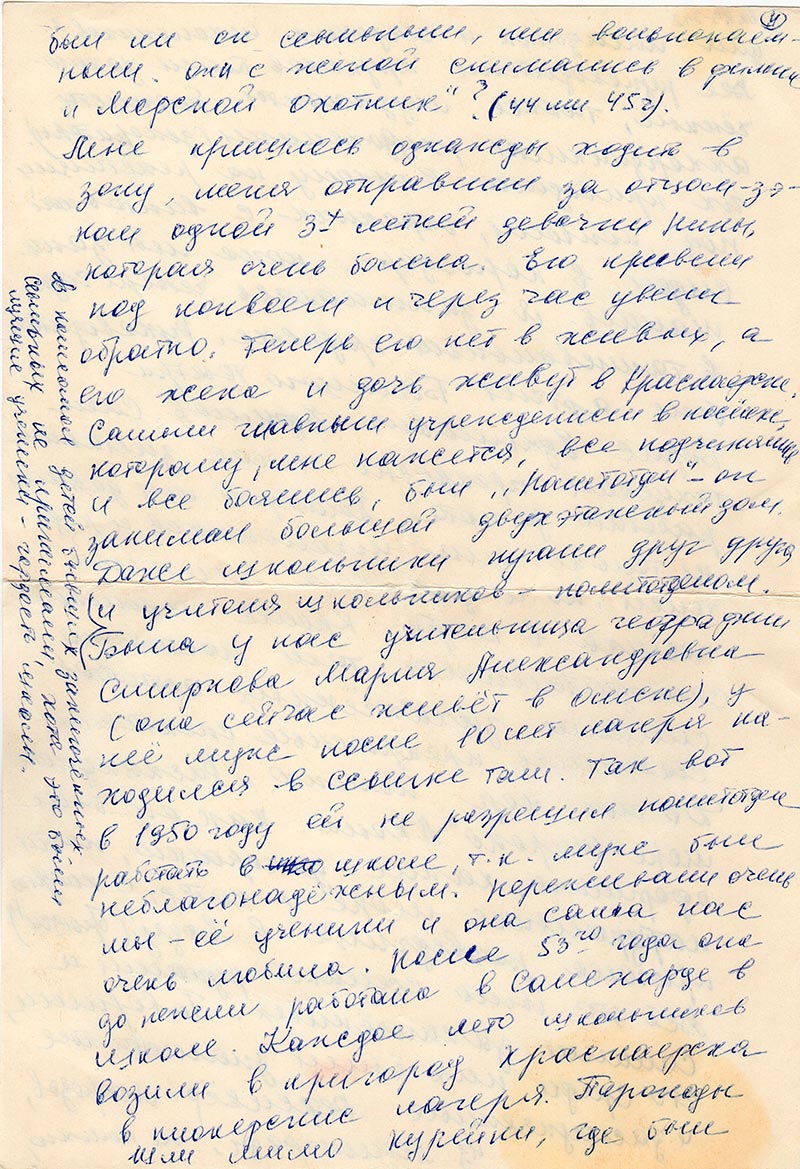 4
был ли он ссыльным, или вольнонаём-
ным. они с женой снимались в фильме
„Морской охотник"? (44 или 45 г).
Мне пришлось однажды ходить в
зону, меня отправили за отцом-зэ-
ком одной 3х летней девочки Нины,
которая очень болела. Его привели
под конвоем и через час увели
обратно. Теперь его нет в живых, а
его жена и дочь живут в Красноярске.
Самым главным учреждением в посёлке,
которому, мне кажется, все подчинялись
и все боялись, был „Политотдел" - он
занимал большой двухэтажный дом.
Даже школьники пугали друг друга
(и учителя школьников - политотделом.
Была у нас учительница географии
Смирнова Мария Александровна
(она сейчас живёт в Омске), у
неё муж после 10 лет лагеря на-
ходился в ссылке там. Так вот
в 1950 году ей не разрешил политотдел
работать в школе, т.к. муж был
неблагонадёжным. Переживали очень
мы - её ученики и она сама нас
очень любила. После 53го года она
до пенсии работала в Салехарде в
школе. Каждое лето школьников
возили в пригород Красноярска
в пионерские лагеря. Пароходы
шли мимо Курейки, где был
В комсомол детей бывших заключённых,
ссыльных не приглашали, хотя это были
лучшие ученики - гордость школы.